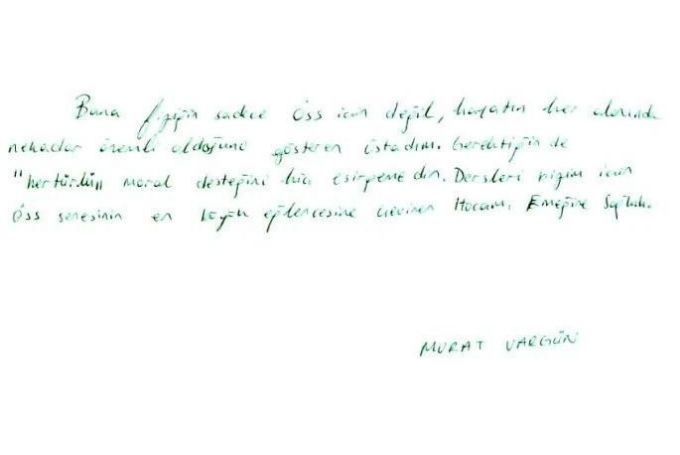 Bana fiziğin sadece öss için değil, hayatın her alanında
nekadar önemli olduğunu gösteren üstadım. Gerektiğin de
"hertürlü" moral desteğini hiç esirgemedin. Dersleri bizim için
öss senesinin en büyük eğlencesine çeviren Hocam. Emeğine Sağlık.
MURAT VARGÜN